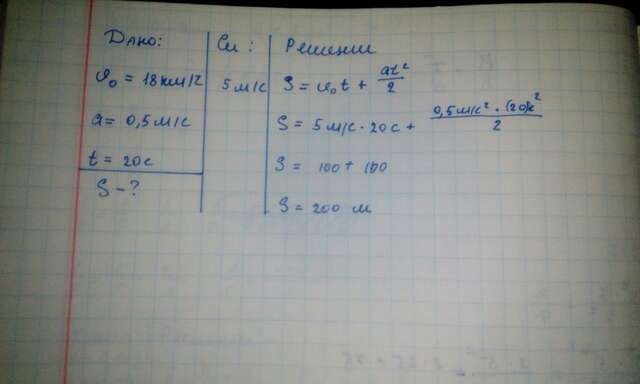 Дано:
υ₀ = 18 км/ч
a = 0,5 м/с
t = 20с
S - ?
Си:
5 м/с
Решении
S = υ₀t + at²/2
S = 5 м/с · 20с + 0,5 м/с² · (20)с²/2
S = 100 + 100
S = 200 м